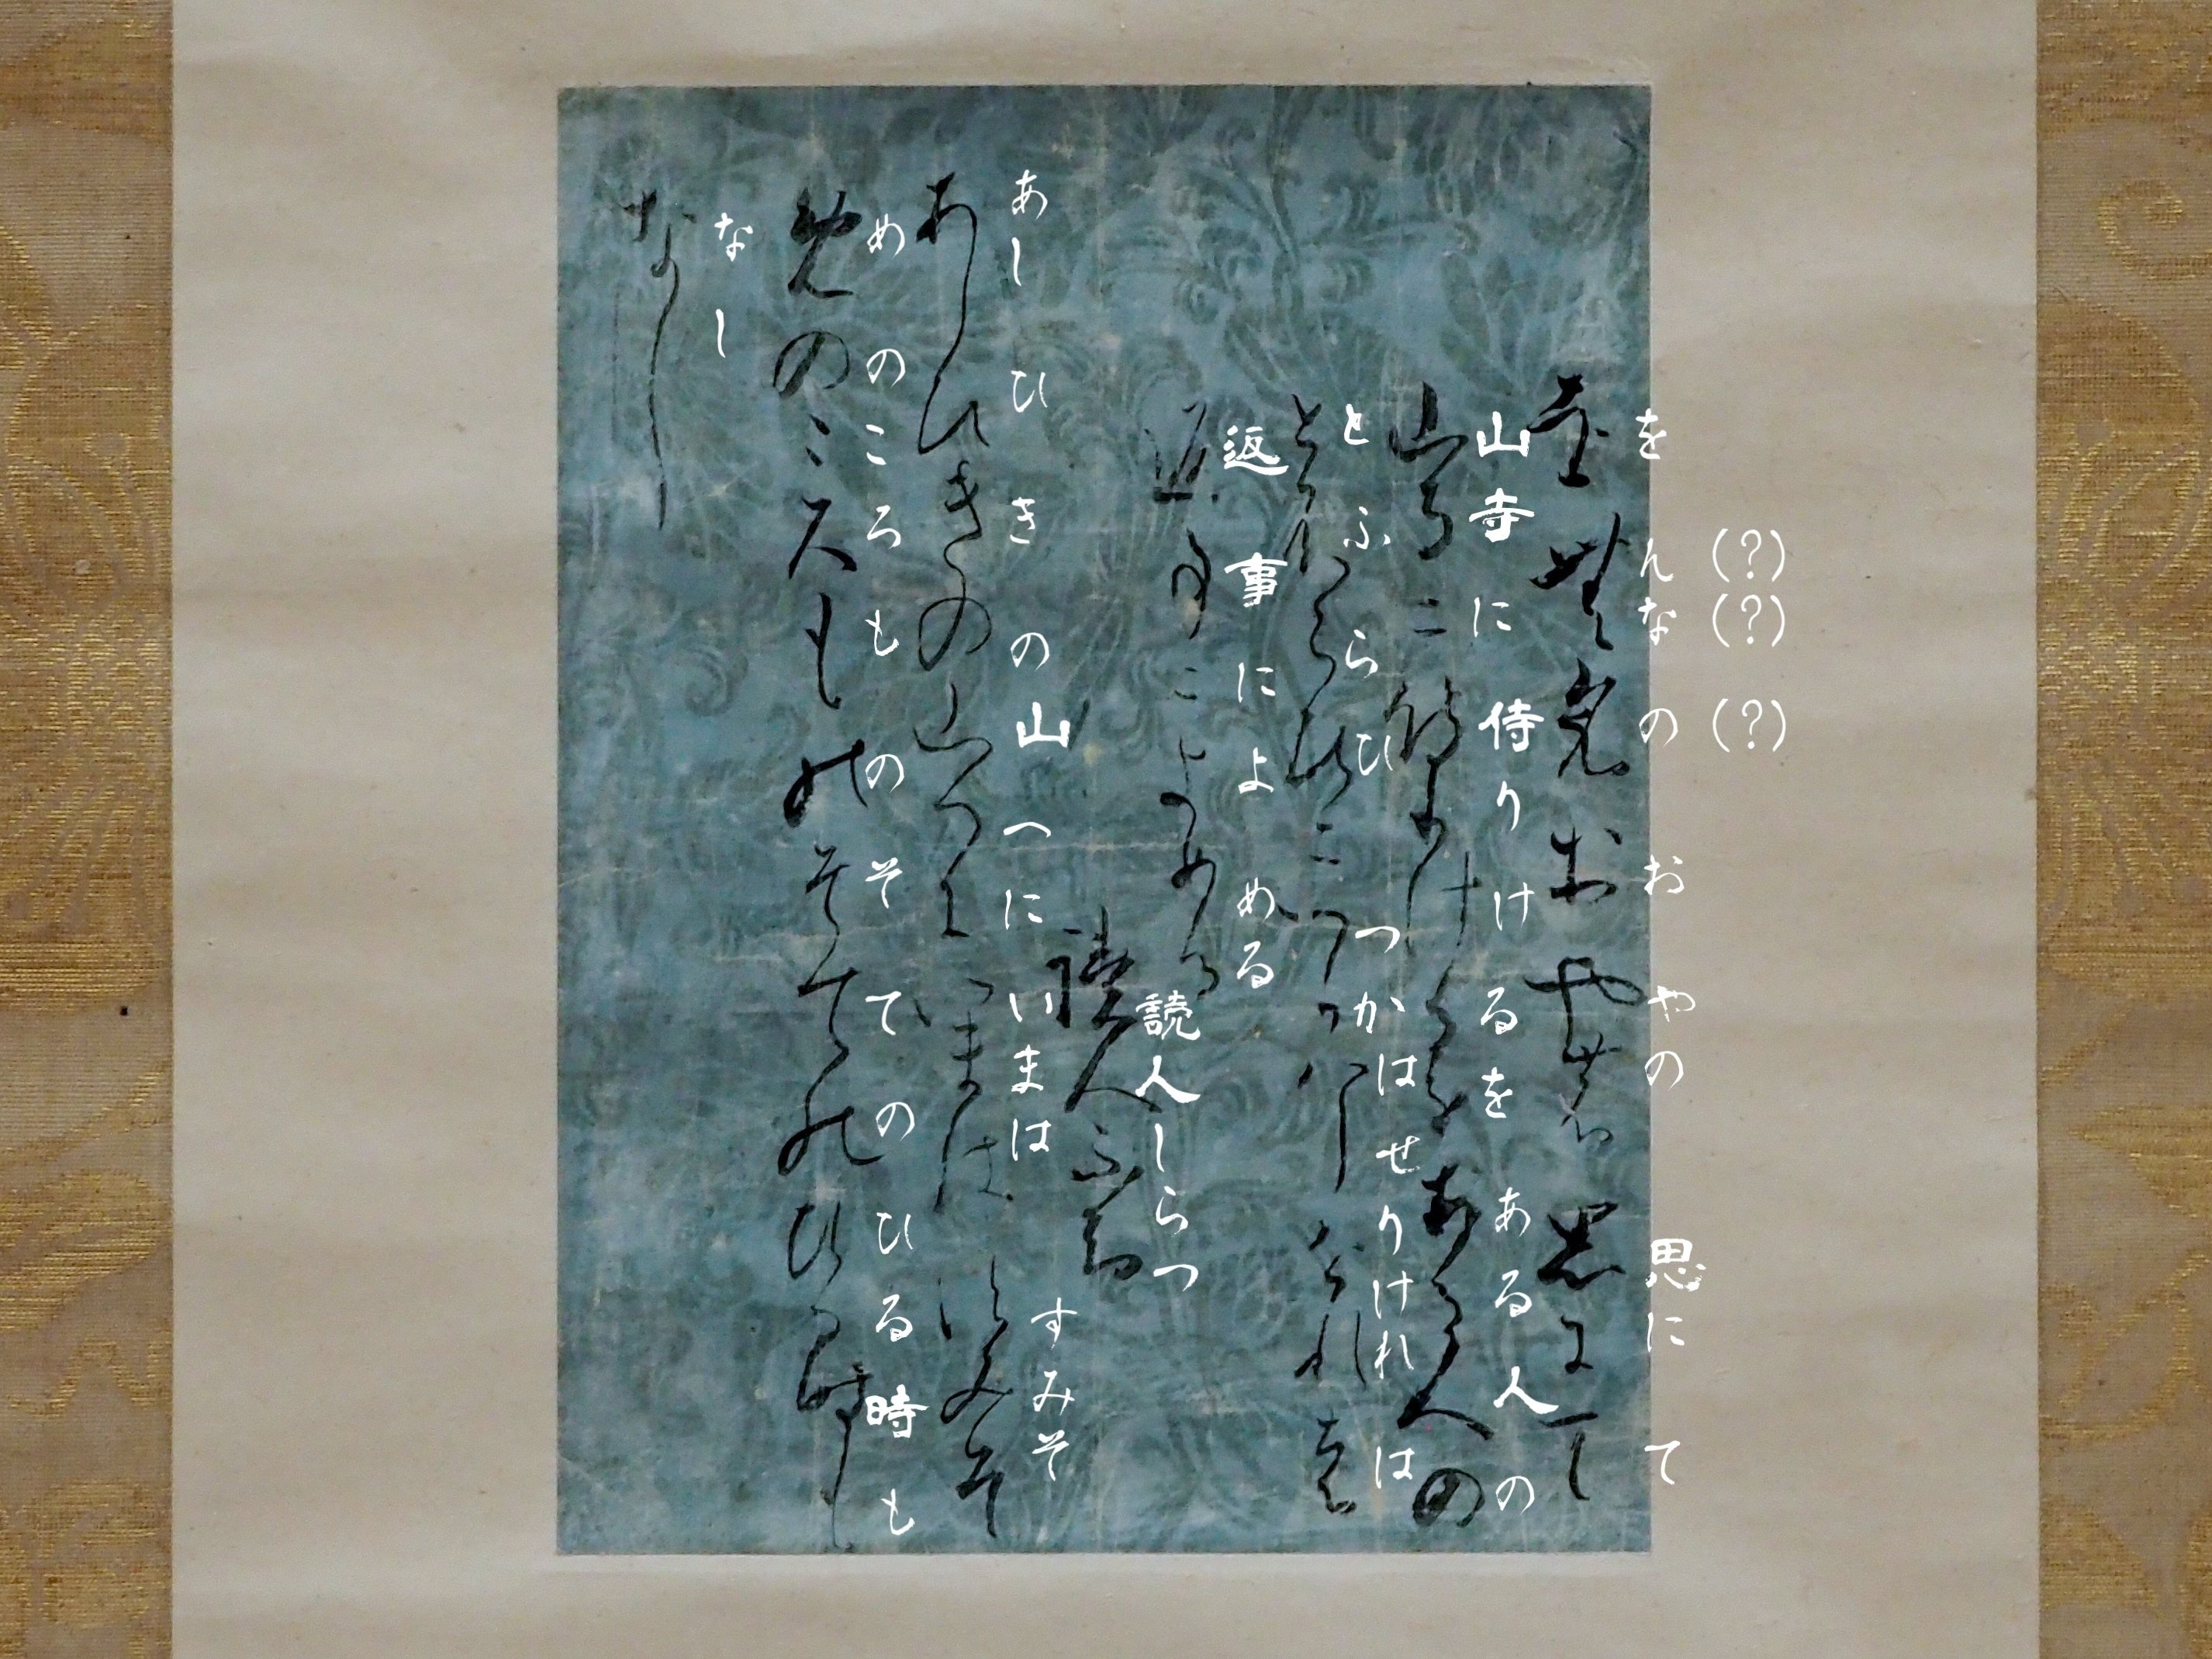 (?)(?)(?)
をんなのおやの思にて
山寺に侍りけるをある人の
とふらひつかはせりけれは
返事によめる
読人しらつ
あしひきの山へにいまはすみそ
めのころものそてのひる時も
なし